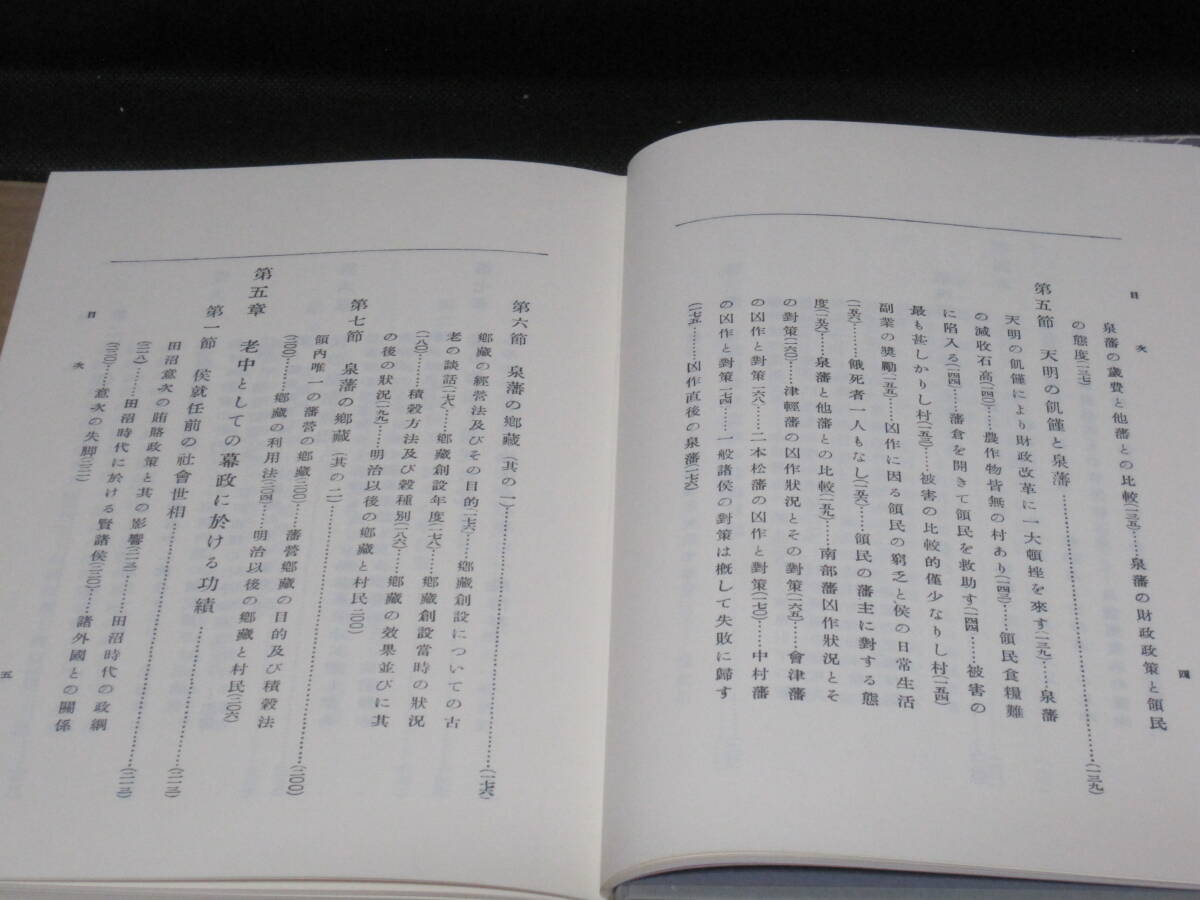 目次
四
泉藩の歲費と他藩との比較(一三五)……泉藩の財政政策と領民
の態度(一三七)
第五節 天明の飢饉と泉藩……(一三九)
天明の飢饉により財政改革に一大頓挫を來す(一三九)……泉藩
の減收石高(一四〇)……農作物皆無の村あり(一四三)……領民食糧難
に陷入る(一四四)……藩倉を開きて領民を救助す(一四四)……被害の
最も甚しかりし村(一五三)……被害の比較的僅少なりし村(一五四)
副業の奬勵(一五五)……凶作に因る領民の窮乏と侯の日常生活
(一五六)……餓死者一人もなし(一五六)……領民の藩主に對する態
度(一五六)……泉藩と他藩との比較(一五九)……南部藩凶作狀況とそ
の對策(一六〇)……津輕藩の凶作狀況とその對策(一六五)……會津藩
の凶作と對策(一六八)……二本松藩の凶作と對策(一七〇)……中村藩
の凶作と對策(一七四)……一般諸侯の對策は槪して失敗に歸す
(一七五)……凶作直後の泉藩(一七六)
第六節 泉藩の鄕藏(其の一)……(一七六)
鄕藏の經營法及びその目的(一七六)……鄕藏創設についての古
老の談話(一七八)……鄕藏創設年度(一七八)……鄕藏創設當時の狀況
(一八〇)……積穀方法及び穀種別(一八六)……鄕藏の效果並びに其
の後の狀況(一九一)……明治以後の鄕藏と村民(二〇〇)
第七節 泉藩の鄕藏(其の二)……(二〇〇)
領內唯一の藩營の鄕藏(二〇〇)……藩營鄕藏の目的及び積穀法
(二〇〇)……鄕藏の利用法(二〇四)……明治以後の鄕藏と村民(二〇六)
第五章 老中としての幕政に於ける功績……(二一三)
第一節 侯就任前の社會世相……(二一三)
田沼意次の賄賂政策と其の影響(二一三)……田沼時代の政綱
(二一八)……田沼時代に於ける賢諸侯(二二〇)……諸外國との關係
(二二〇)……意次の失脚(二二二)
目次
五